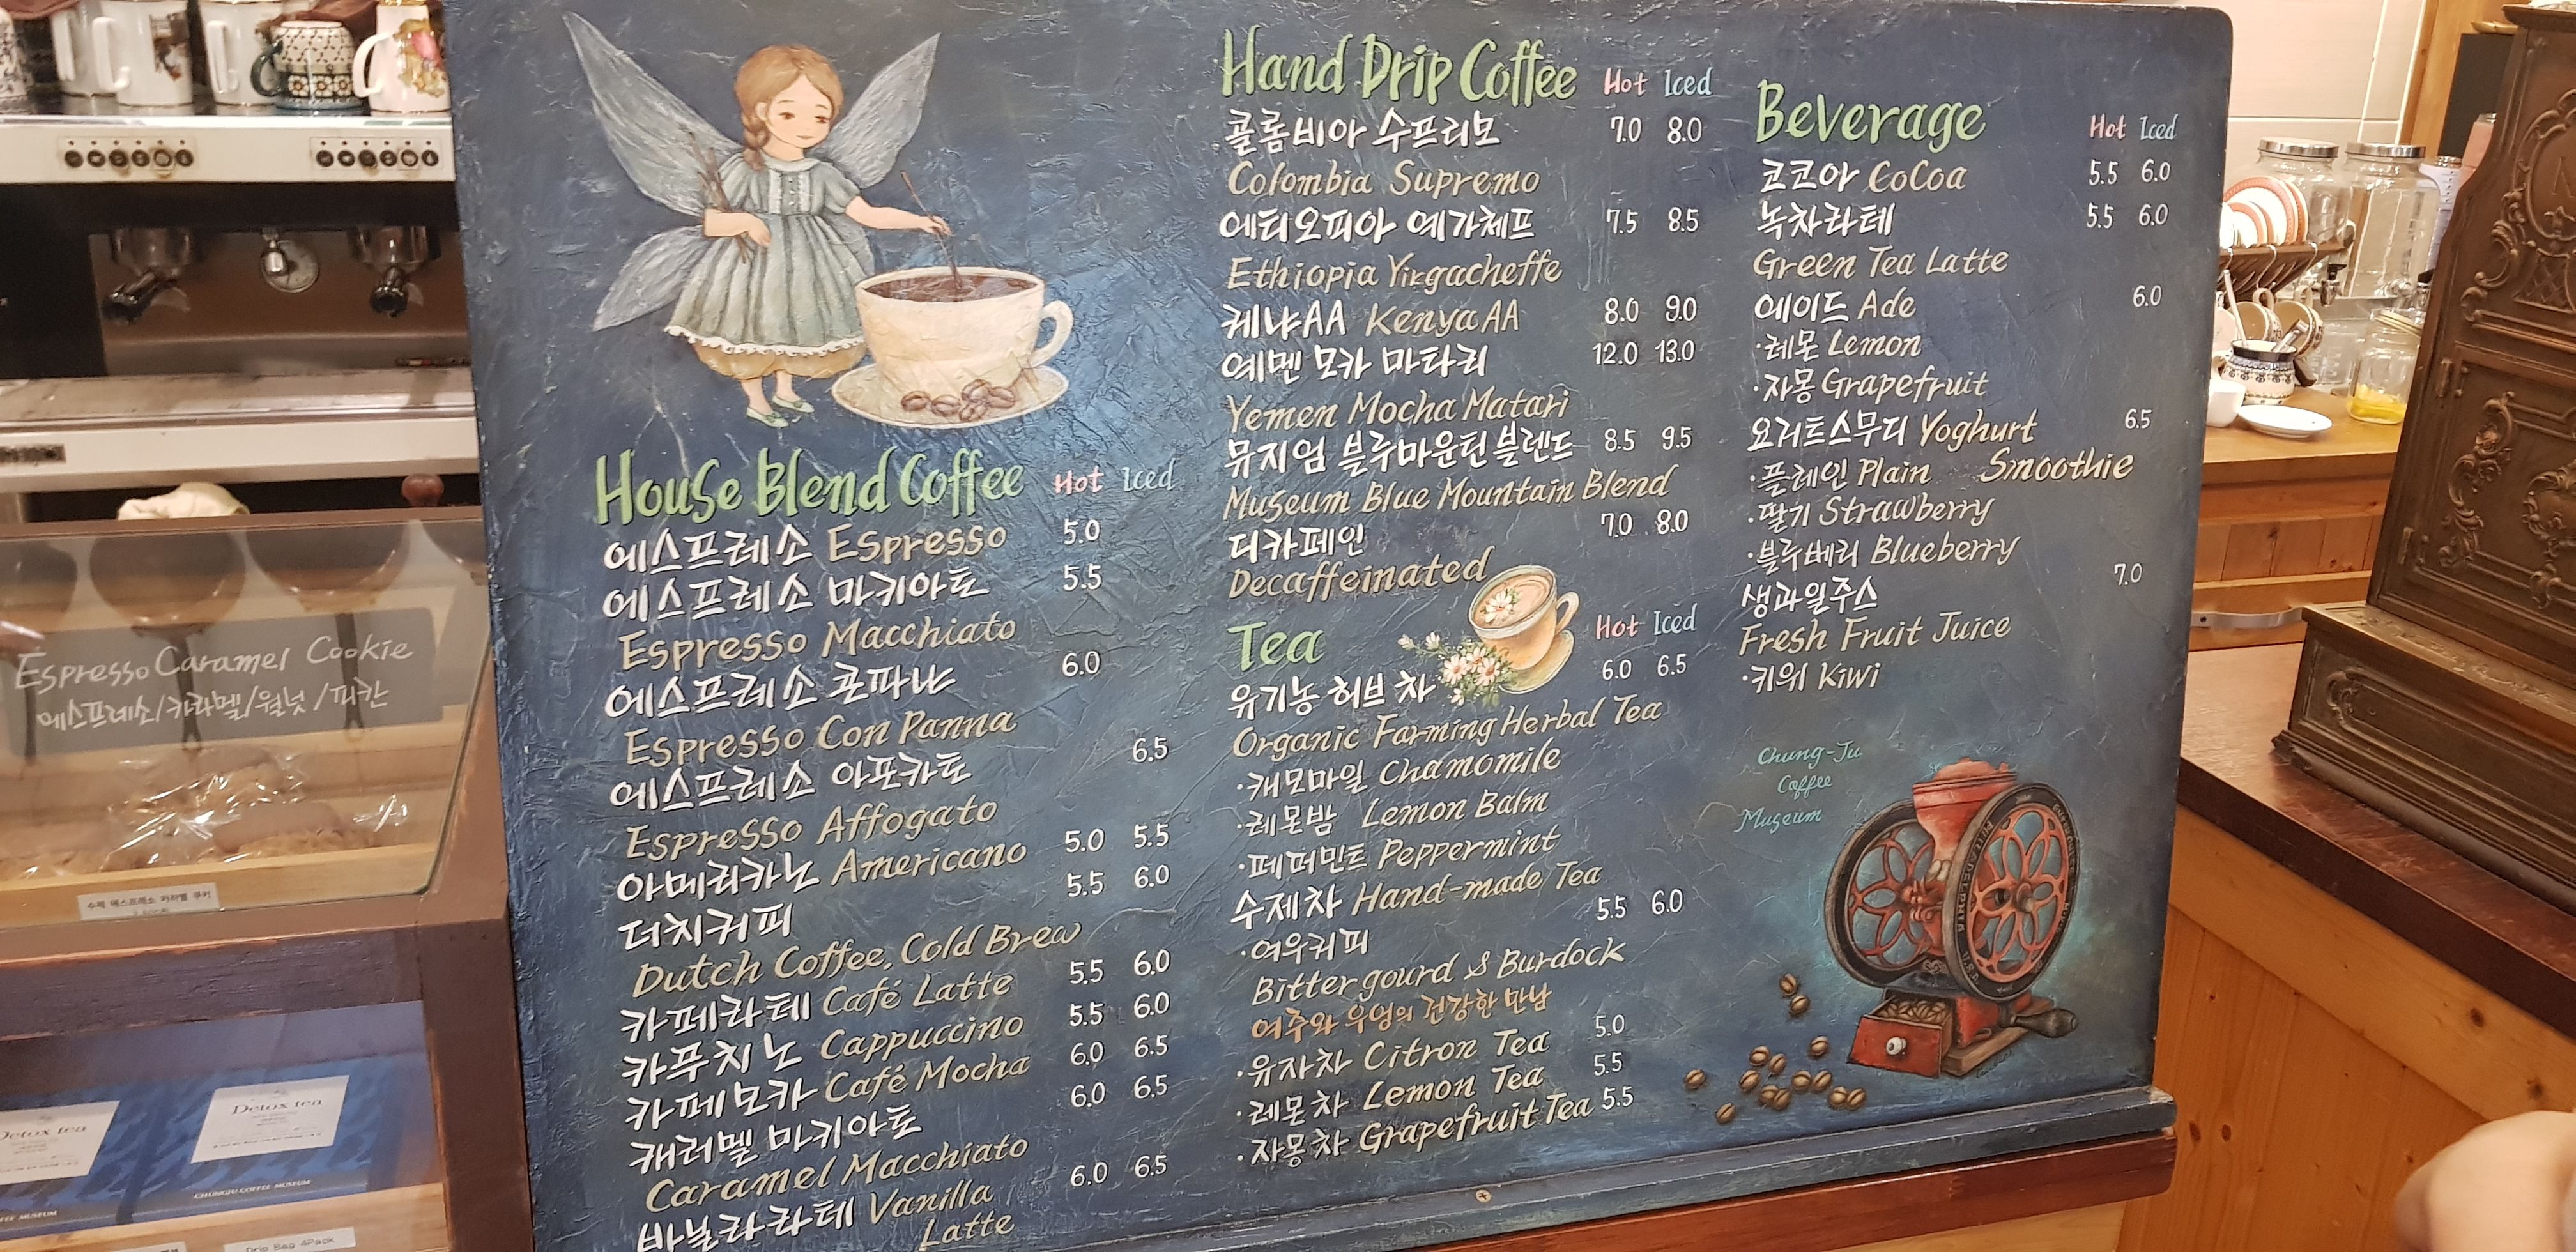 House Blend Coffee Hot Iced
에스프레소 Espresso 5.0
에스프레소 마키아토 5.5
Espresso Macchiato
에스프레소 콘파냐 6.0
Espresso Con Panna
에스프레소 아포카토 6.5
Espresso Affogato
아메리카노 Americano 5.0 5.5
더치커피 5.5 6.0
Dutch Coffee, Cold Brew
카페라테 Café Latte 5.5 6.0
카푸치노 Cappuccino 5.5 6.0
카페모카 Café Mocha 6.0 6.5
캐러멜 마키아토 6.0 6.5
Caramel Macchiato
바닐라 라테 Vanilla 6.0 6.5
Latte
Hand Drip Coffee Hot Iced
콜롬비아 수프리모 7.0 8.0
Colombia Supremo
에티오피아 예가체프 7.5 8.5
Ethiopia Yirgacheffe
케냐AA Kenya AA 8.0 9.0
예멘 모카 마타리 12.0 13.0
Yemen Mocha Matari
뮤지엄 블루마운틴 블렌드 8.5 9.5
Museum Blue Mountain Blend
디카페인 7.0 8.0
Decaffeinated
Tea Hot Iced
유기농 허브 차 6.0 6.5
Organic Farming Herbal Tea
·캐모마일 Chamomile
·레몬밤 Lemon Balm
·페퍼민트 Peppermint
수제차 Hand-made Tea
·여우커피 5.5 6.0
Bitter gourd & Burdock
여주와 우엉의 건강한 만남
·유자차 Citron Tea 5.0
·레몬차 Lemon Tea 5.5
·자몽차 Grapefruit Tea 5.5
Beverage Hot Iced
코코아 CoCoa 5.5 6.0
녹차라테 5.5 6.0
Green Tea Latte
에이드 Ade 6.0
·레몬 Lemon
·자몽 Grapefruit
요거트스무디 Yoghurt 6.5
·플레인 Plain Smoothie
·딸기 Strawberry
·블루베리 Blueberry
생과일주스 7.0
Fresh Fruit Juice
·키위 Kiwi
Chung-Ju
Coffee
Museum
Espresso Caramel Cookie
에스프레소/카라멜/월넛/피칸
수제 에스프레소 카라멜 쿠키
Detox tea
Detox tea
CHUNGJU COFFEE MUSEUM
MUSEUM
Drip Bag 4Pack